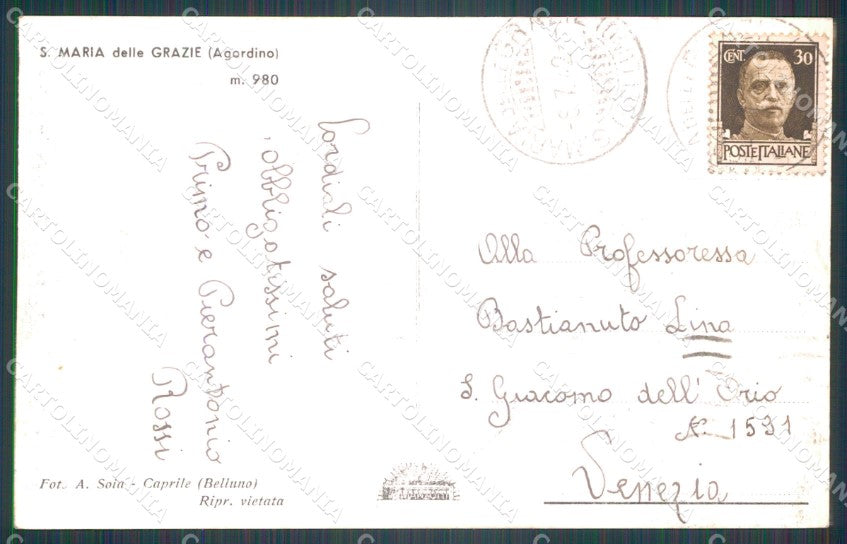 S. MARIA delle GRAZIE (Agordino)
m. 980
Cordiali saluti
obbligatissimi
Primo e Pierantonio
Rossi
Fot. A. Soia - Caprile (Belluno)
Ripr. vietata
CENT. 30
POSTE ITALIANE
Alla Professoressa
Bastianuto Lina
S. Giacomo dell'Orio
N. 1591
Venezia
CARTOLINOMANIA